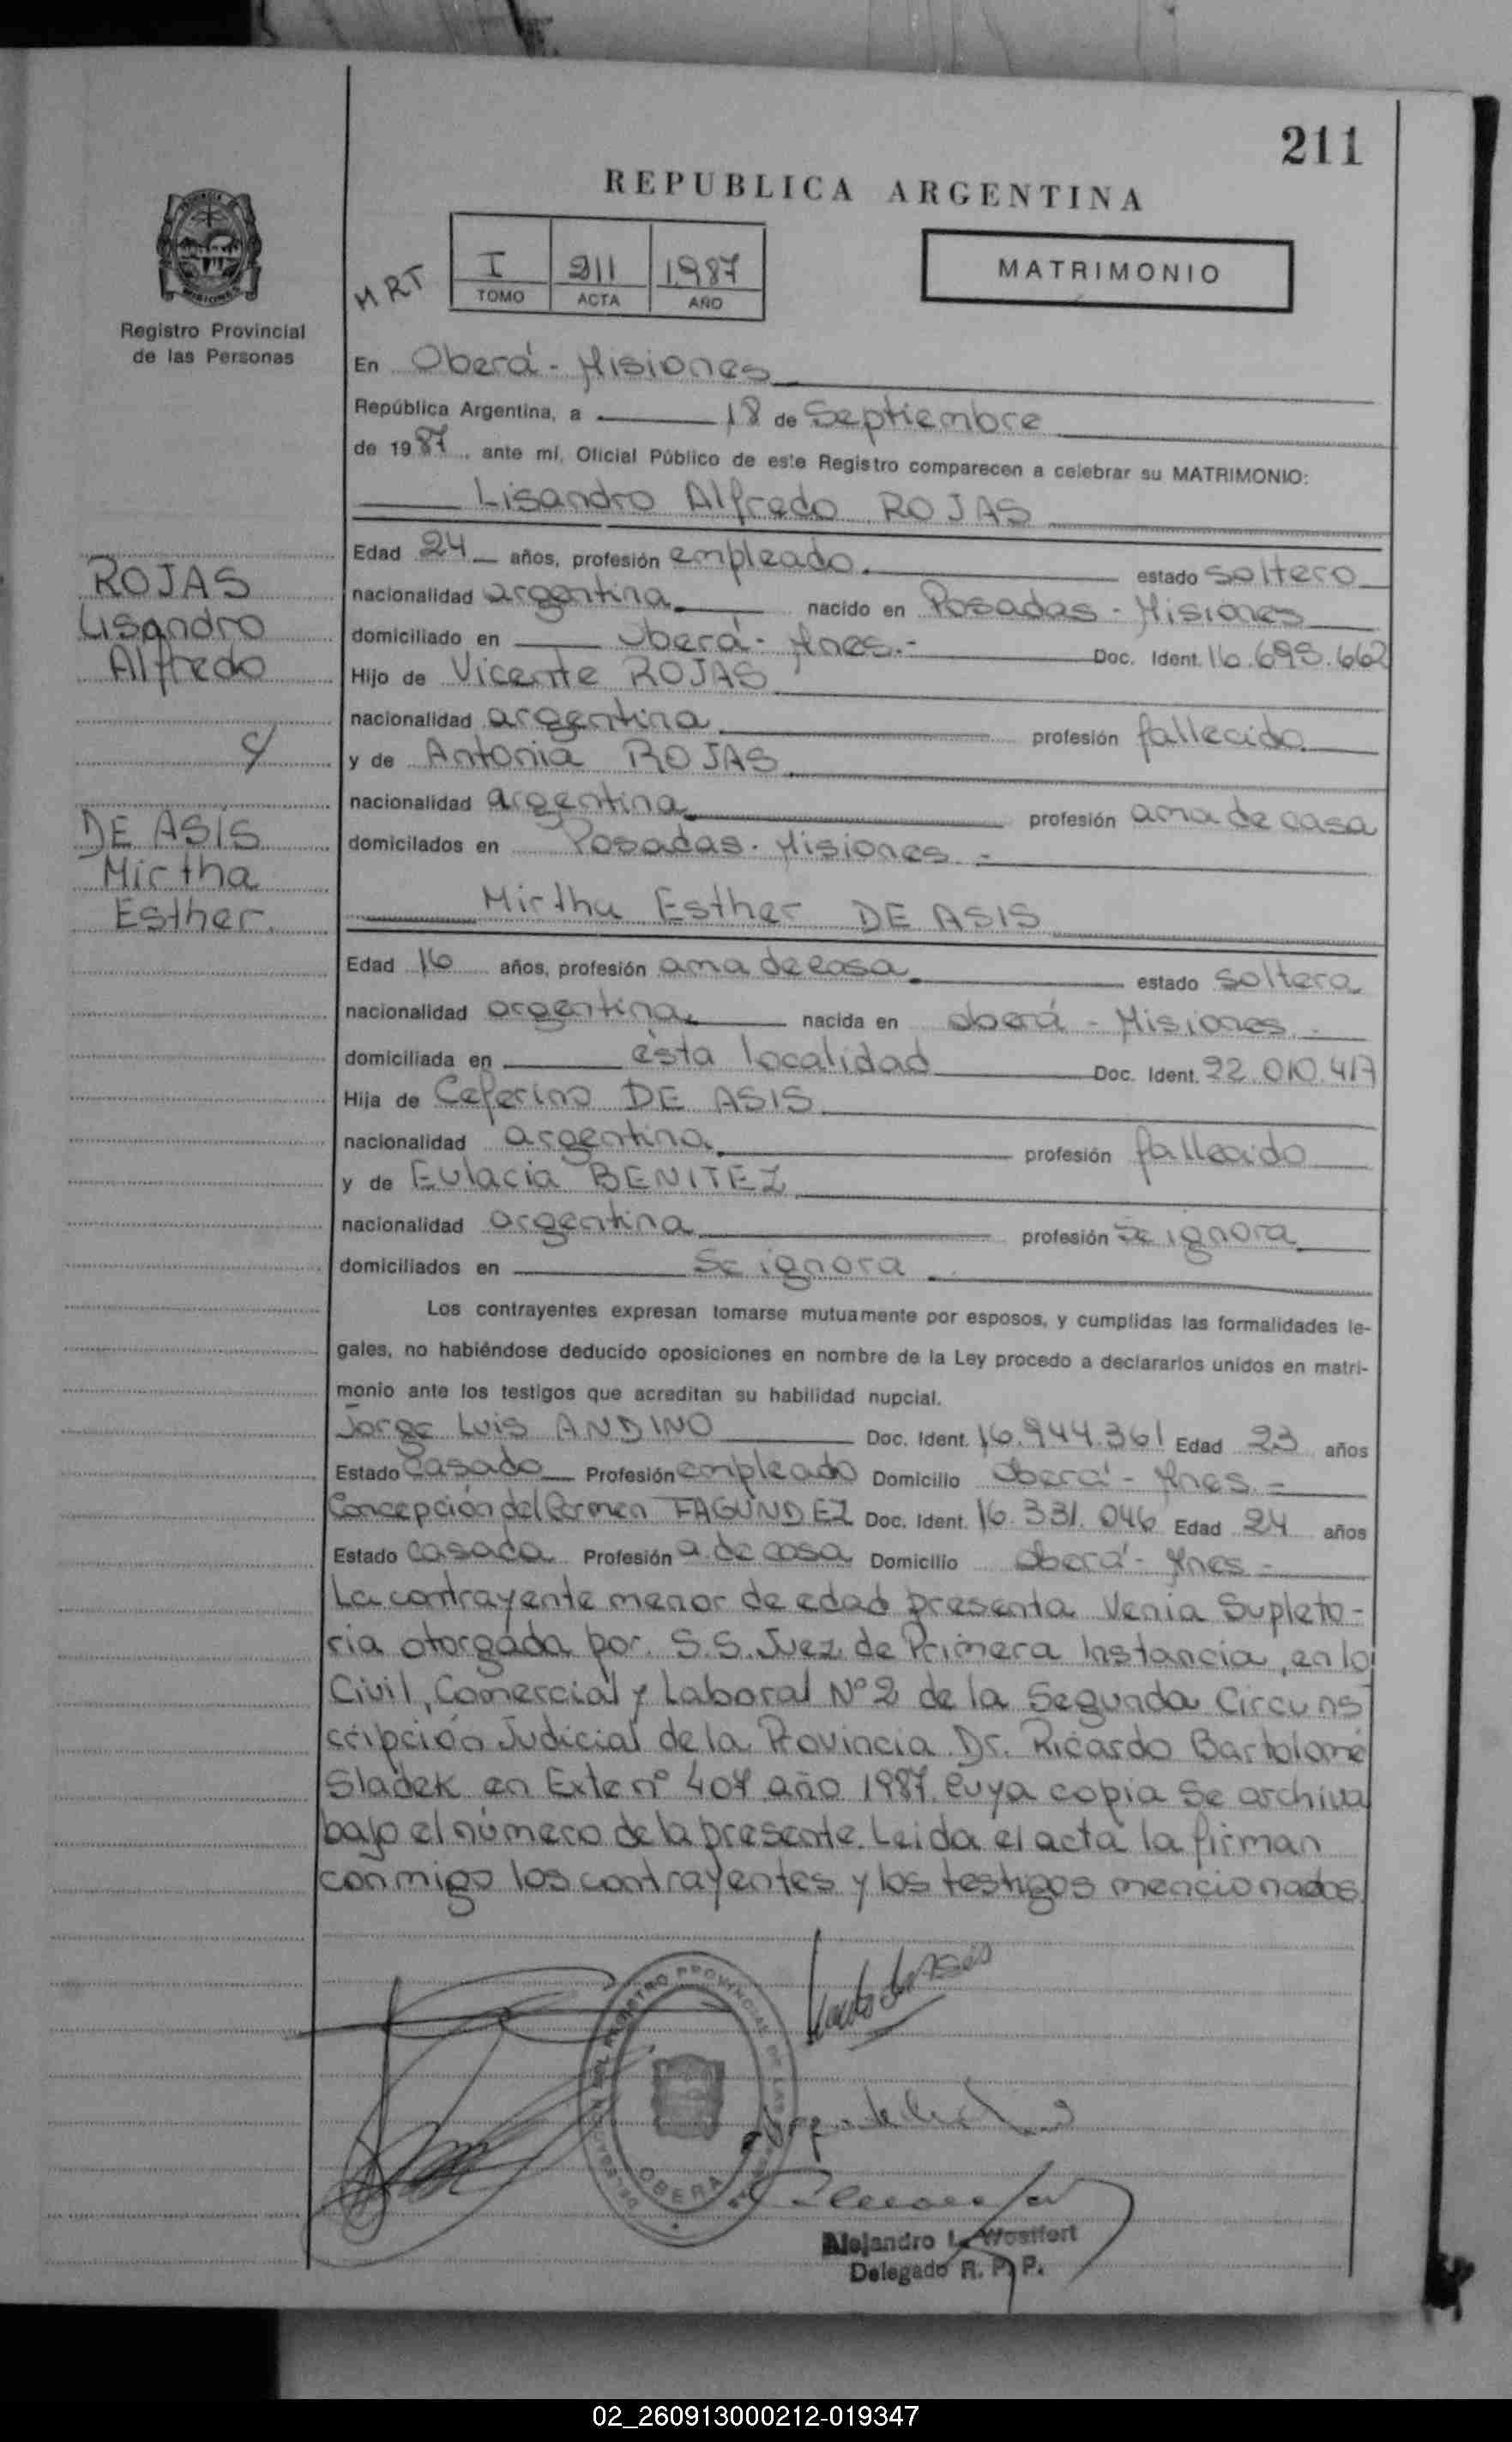 211
REPUBLICA ARGENTINA
MISIONES
Registro Provincial
de las Personas
MRT
I 211 1987
TOMO ACTA AÑO
MATRIMONIO
En Oberá - Misiones
República Argentina, a 18 de Septiembre
de 1987, ante mí, Oficial Público de este Registro comparecen a celebrar su MATRIMONIO:
Lisandro Alfredo ROJAS
ROJAS
Lisandro
Alfredo
c/
DE ASÍS
Mirtha
Esther.
Edad 24 años, profesión empleado. estado soltero
nacionalidad argentina nacido en Posadas - Misiones
domiciliado en Oberá - Mnes.- Doc. Ident. 16.695.662
Hijo de Vicente ROJAS
nacionalidad argentina profesión fallecido
y de Antonia ROJAS
nacionalidad argentina profesión ama de casa
domicilados en Posadas - Misiones -
Mirtha Esther DE ASIS
Edad 16 años, profesión ama de casa estado soltera
nacionalidad argentina nacida en Oberá - Misiones
domiciliada en ésta localidad Doc. Ident. 22.010.417
Hija de Ceferino DE ASIS
nacionalidad argentina profesión fallecido
y de Eulacia BENITEZ
nacionalidad argentina profesión se ignora
domiciliados en se ignora
Los contrayentes expresan tomarse mutuamente por esposos, y cumplidas las formalidades le-
gales, no habiéndose deducido oposiciones en nombre de la Ley procedo a declararlos unidos en matri-
monio ante los testigos que acreditan su habilidad nupcial.
Jorge Luis ANDINO Doc. Ident. 16.944.361 Edad 23 años
Estado casado Profesión empleado Domicilio Oberá - Mnes -
Concepción del Carmen FAGUNDEZ Doc. Ident. 16.331.046 Edad 24 años
Estado casada Profesión a. de casa Domicilio Oberá - Mnes -
La contrayente menor de edad presenta Venia Supleto-
ria otorgada por. S.S. Juez de Primera Instancia, en lo
Civil, Comercial y Laboral Nº 2 de la Segunda Circuns
cripción Judicial de la Provincia Dr. Ricardo Bartolomé
Sladek en Exte nº 407 año 1987 cuya copia se archiva
bajo el número de la presente. Leida el acta la firman
conmigo los contrayentes y los testigos mencionados.
REGISTRO PROVINCIAL DE LAS
OBERA
Alejandro L. Wostfert
Delegado R. P. P.
02_260913000212-019347